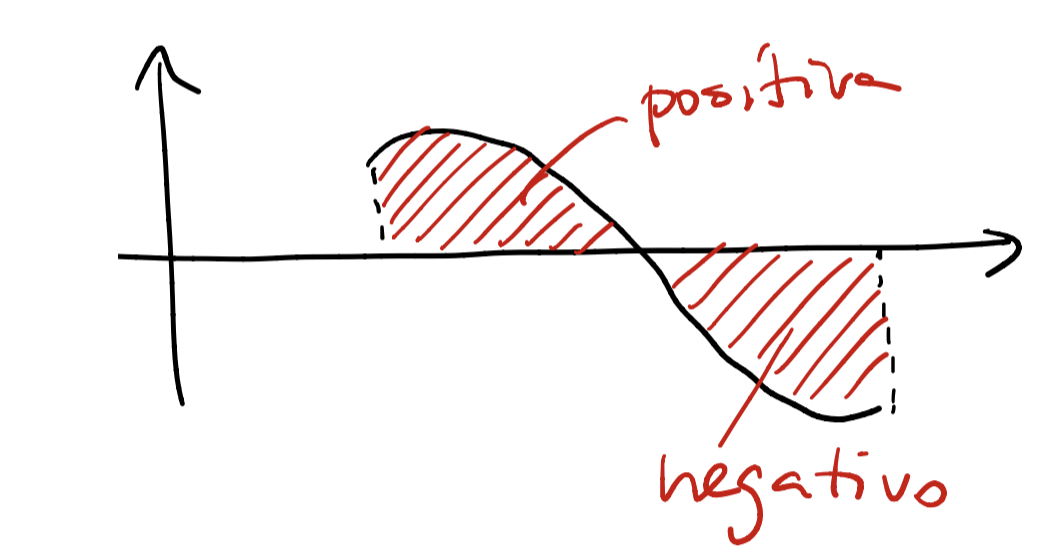 positiva
negativo